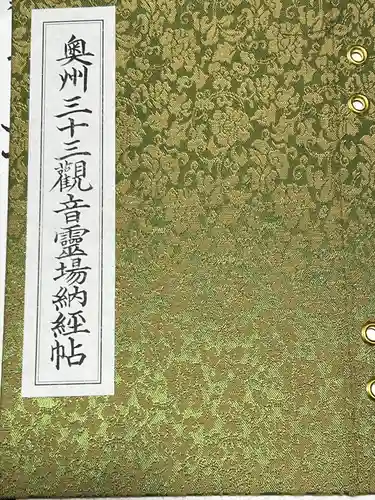 奥州三十三觀音靈場納経帖